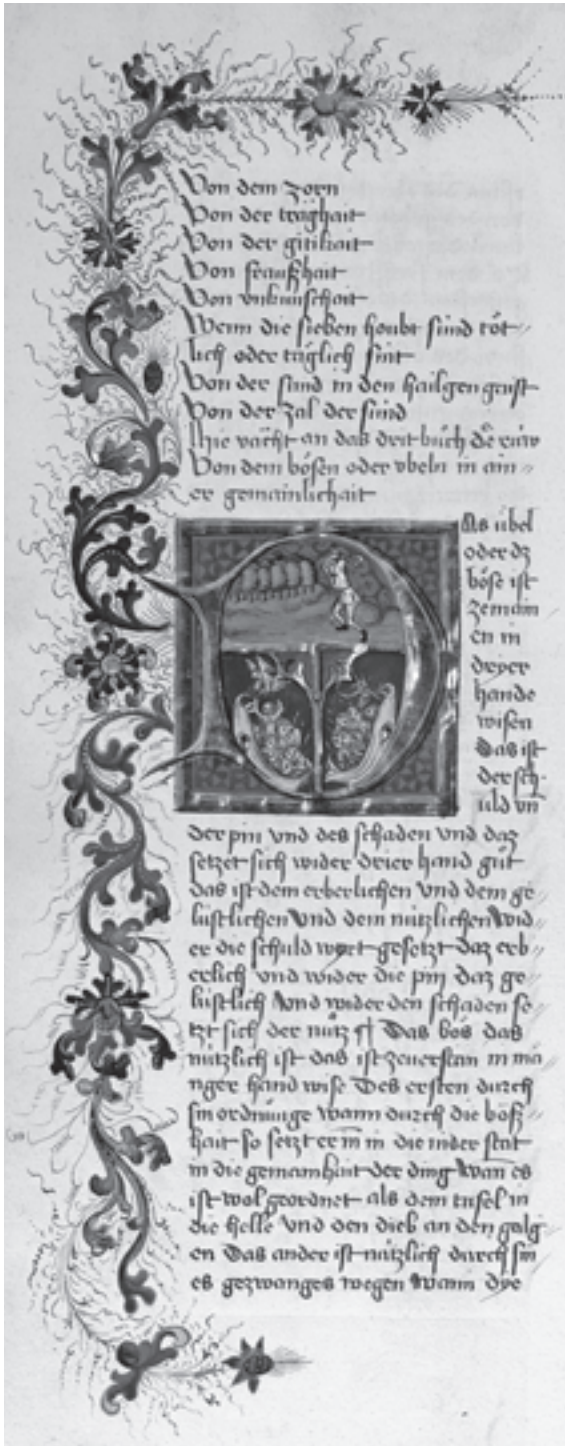 Von dem zorn
Von der träghait
Von der gitikait
Von fraußhait
Von vnkuischait
Wenn die sieben houbt sünd töt
lich oder täglich sint
Von der sünd in den hailgen gaist
Von der Zal der sünd
Hie vacht an das drit büch der
Von dem bösen oder vbeln in ain
er gemainlichait
Das übel
oder dz
böse ist
zemain
en in
dryer
hande
wisen
Das ist
der sch
uld vn
der pin vnd des schaden vnd daz
setzet sich wider drier hand güt
das ist dem erberlichen vnd dem ge
lüstlichen vnd dem nützlichen Wid
er die schuld wyrt gesetzt daz erb
erlich vnd wider die pin daz ge
lüstlich Vnd wider den schaden se
tzt sich der nütz ¶ Das bös das
nützlich ist das ist zeuerstan in ma
nger hand wise Des ersten durch
sin ordnunge Wann durch die böß
hait so setzt er in in die nider stat
in die gemainhait der ding Wan es
ist wol geordnet als dem tüfel in
die helle vnd den dieb an den galg
en Das ander ist nützlich durch sin
es gezwanges wegen Wann dye